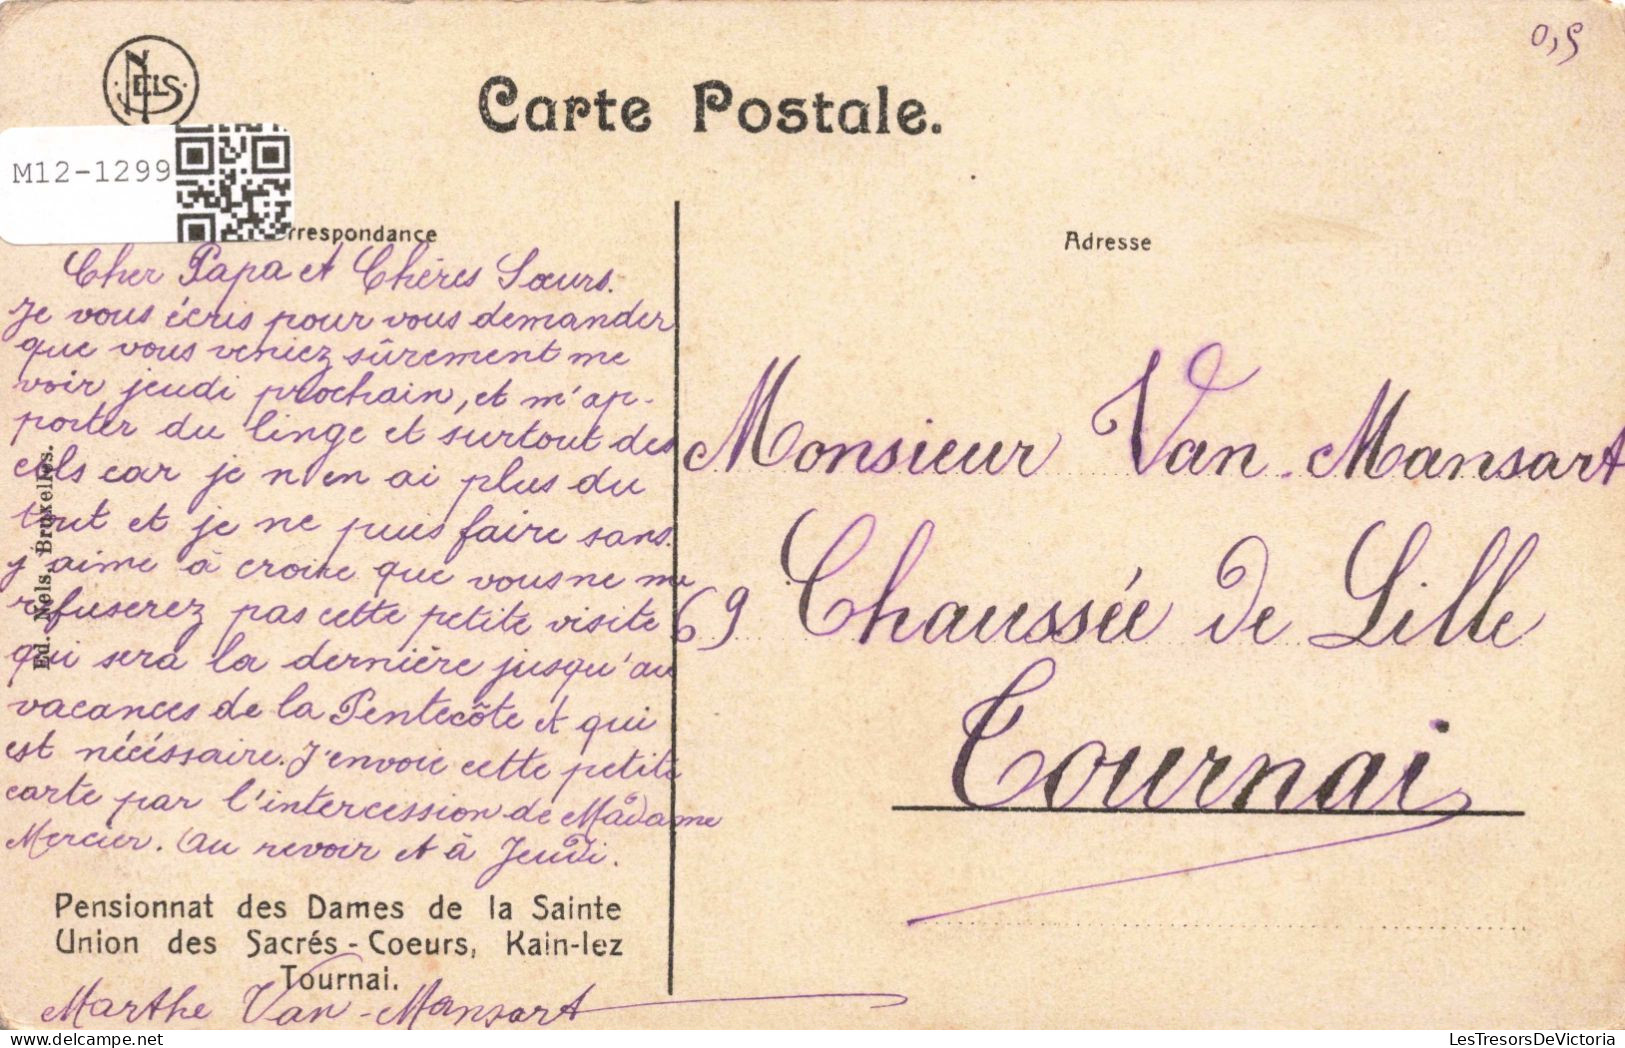 NELS
0,5
Carte Postale.
M12-1299
rrespondance
Adresse
Cher Papa et Chères Sœurs.
Je vous écris pour vous demander
que vous veniez sûrement me
voir jeudi prochain, et m'ap-
porter du linge et surtout des
cols car je n'en ai plus du
tout et je ne puis faire sans.
j'aime à croire que vous ne me
refuserez pas cette petite visite
qui sera la dernière jusqu'au
vacances de la Pentecôte et qui
est nécéssaire. J'envoie cette petite
carte par l'intercession de Madame
Mercier. Au revoir et à Jeudi.
Ed. Nels, Bruxelles.
Pensionnat des Dames de la Sainte
Union des Sacrés-Coeurs, Kain-lez
Tournai.
Marthe Van-Mansart
Monsieur Van-Mansart
69 Chaussée de Lille
Tournai
LesTresorsDeVictoria